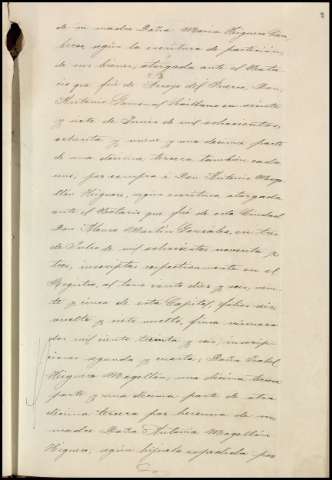 de su madre Doña María Higuero
según la escritura de partición
de sus bienes, otorgada ante el Nota-
rio que fué de Arroyo del Puerco, Don
Antonio en veinte
y siete de Junio de mil ochocientos
ochenta y nueve y una décima parte
de una décima tercera también cada
uno, por compra a Don Antonio Maga-
llón Higuero, según escritura otorgada
ante el Notario que fué de esta Ciudad
Don Alonso Martín González, en tres
de Julio de mil ochocientos noventa y
tres, inscriptas respectivamente en el
Registro, al tomo ciento diez y seis, vein-
te y cinco de esta Capital, folios diez
vuelto y siete vuelto, finca número
dos mil ciento treinta y seis, inscrip-
ciones segunda y cuarta; Doña Isabel
Higuero Magallón, una décima tercera
parte y una décima parte de otra
décima tercera por herencia de su
madre Doña Antonia Magallón
Higuero, según hijuela expedida por